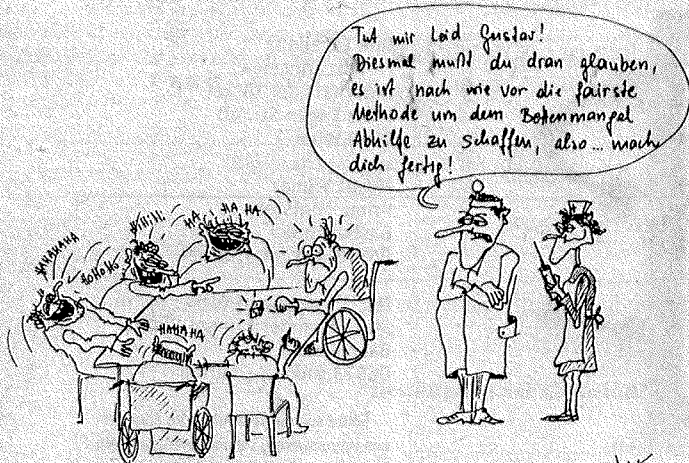 Tut mir Leid Gustav!
Diesmal mußt du dran glauben,
es ist nach wie vor die fairste
Methode um dem Bettenmangel
Abhilfe zu schaffen, also... mach
dich fertig!
HA HA HA
HiHiHi
HAHAHAHA
HOHOHO
HAHAHA